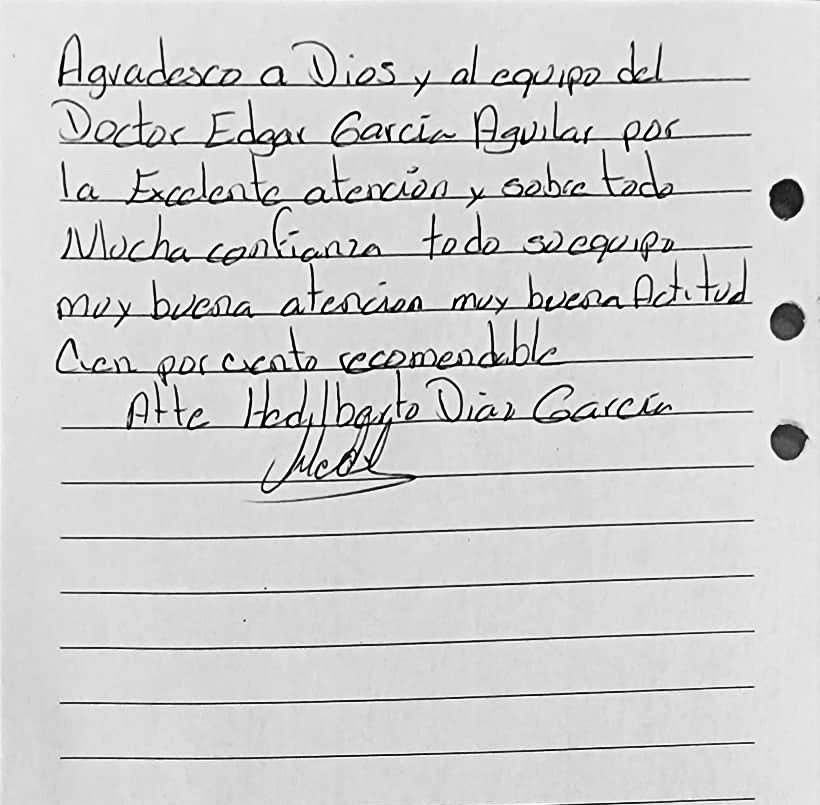 Agradesco a Dios y al equipo del
Doctor Edgar Garcia Aguilar por
la Excelente atención y sobre todo
Mucha confianza todo su equipo
muy buena atencion muy buena Actitud
Cien por ciento recomendable
Atte Hedilberto Diaz Garcia